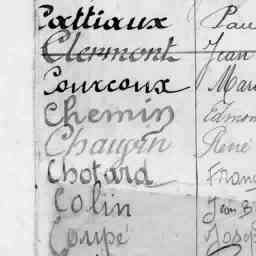 Cattiaux Pau
Clermont Jean
Courcoux Marc
Chemin Edmon
Chaugin René
Chotard Franç
Colin Jean B
Coupé Josep